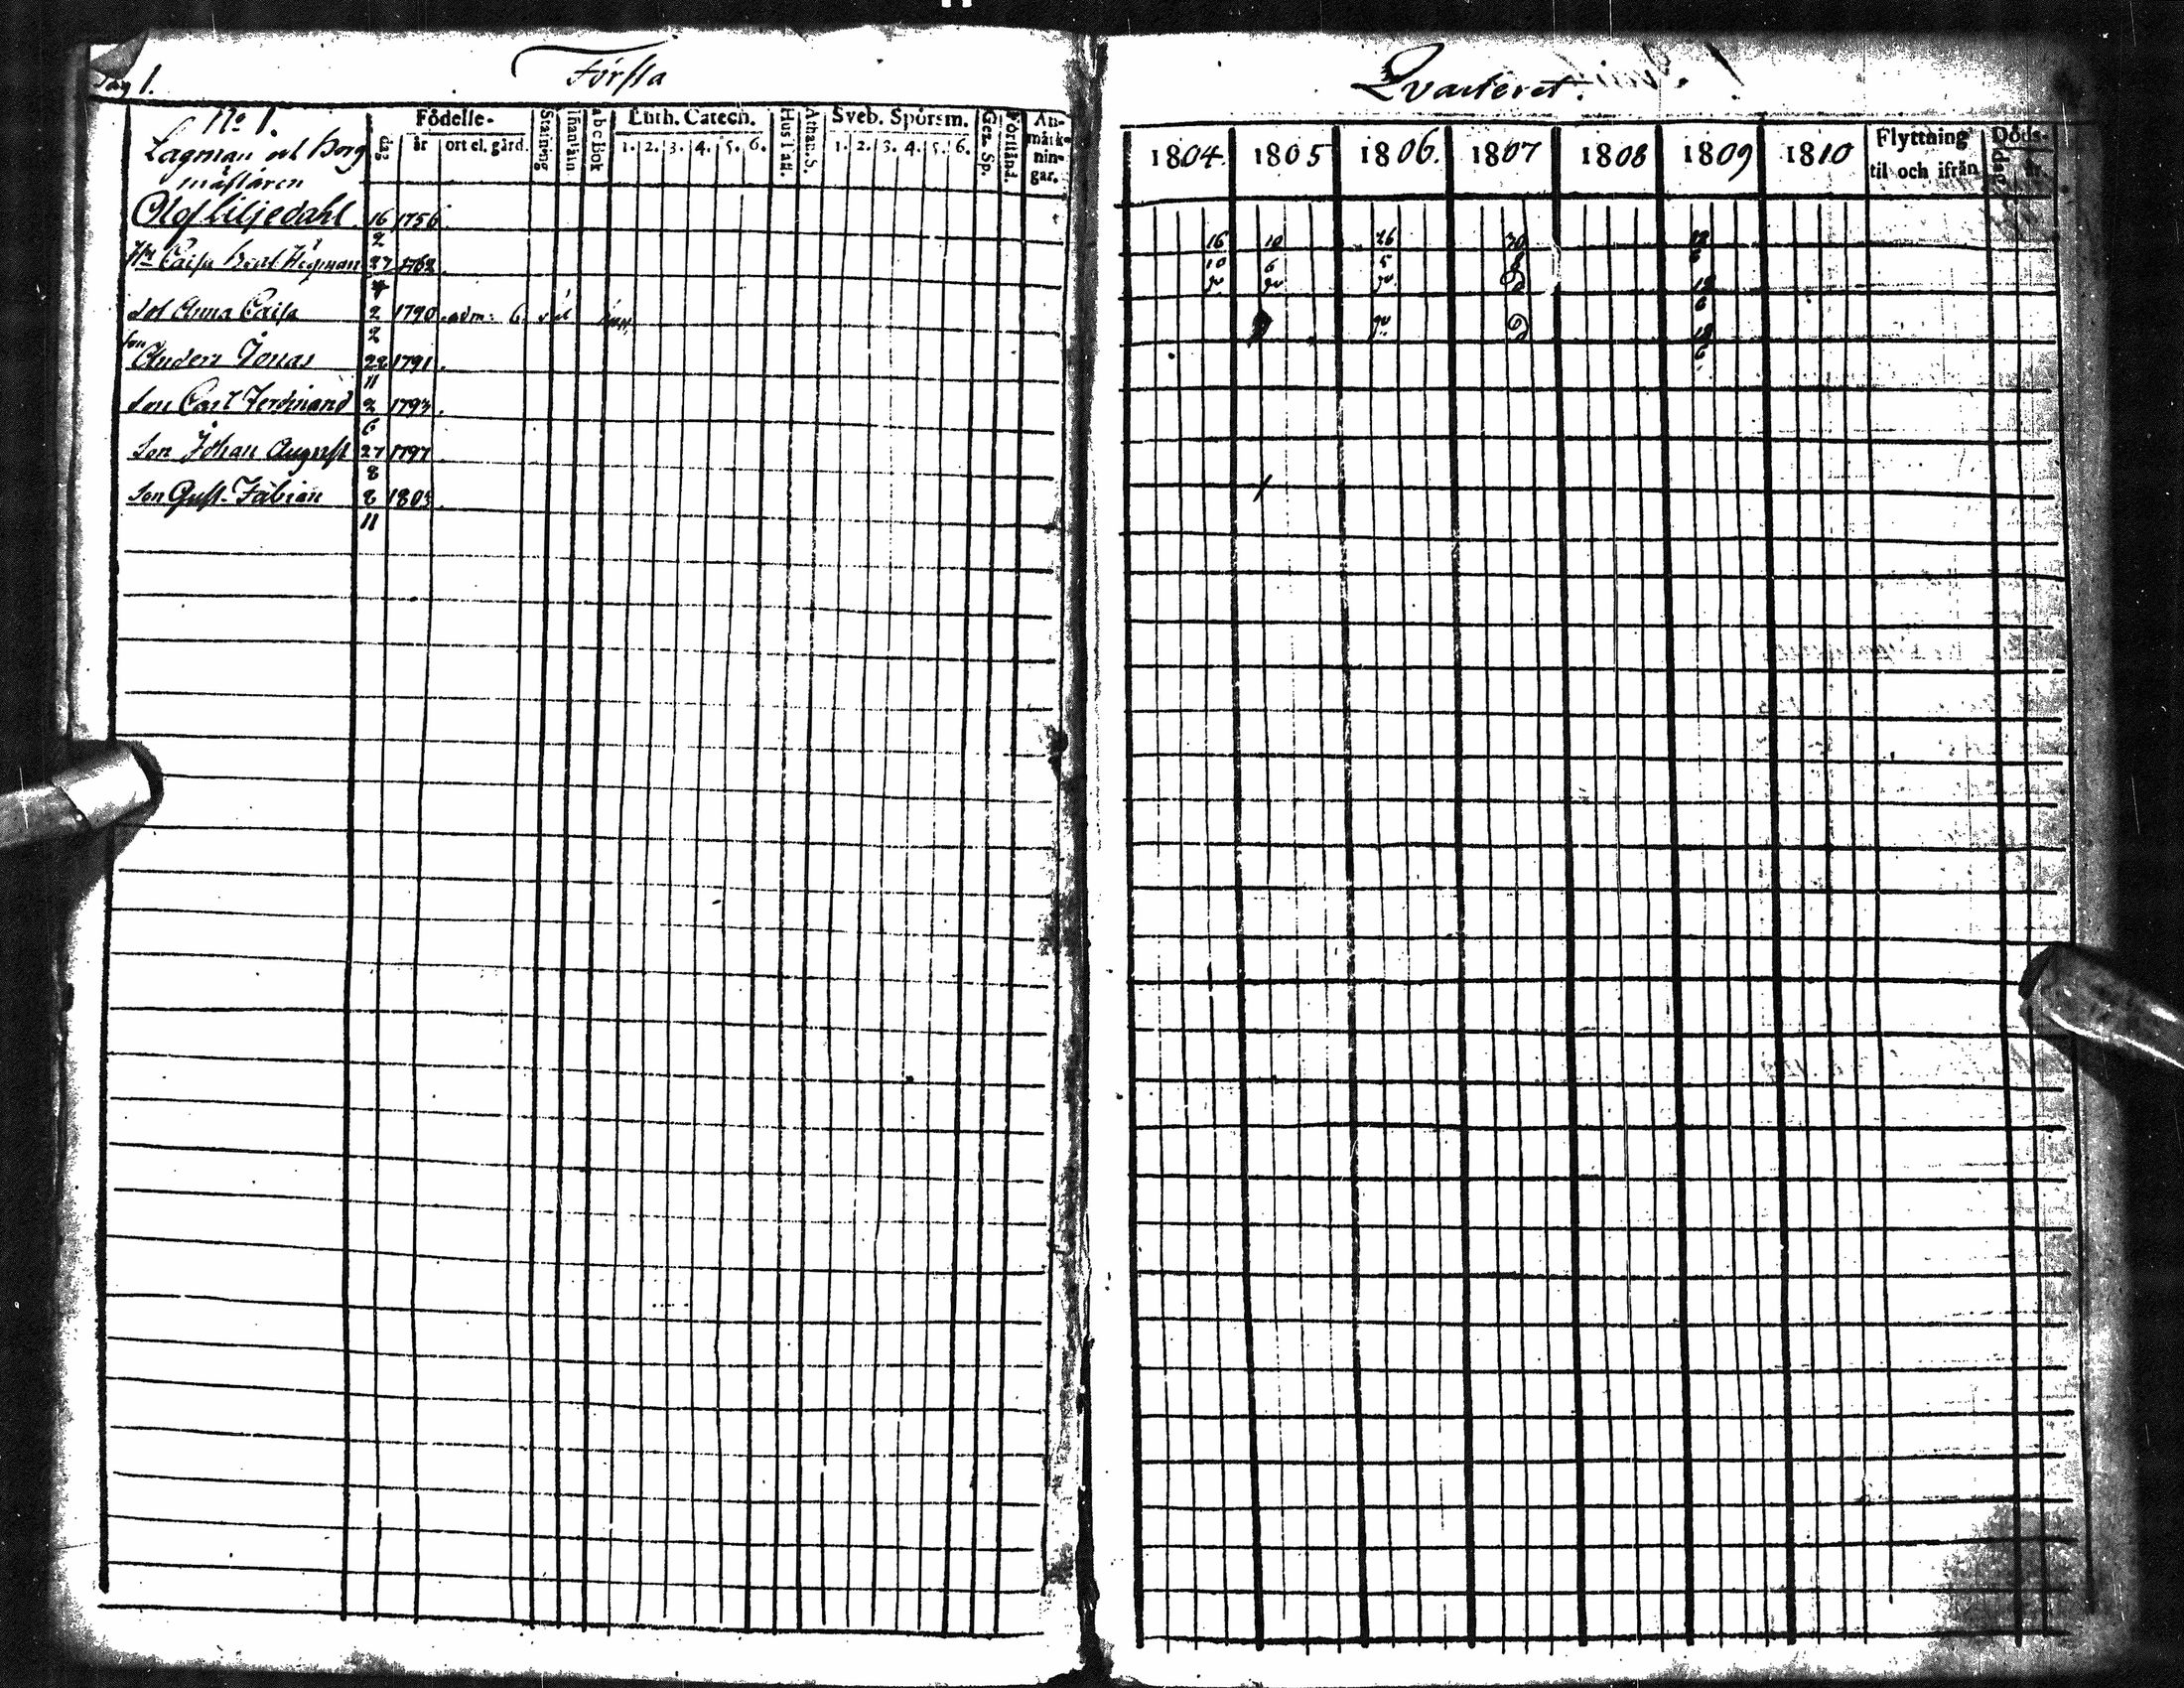 Pag 1.
Första
Qvarteret.
No 1.
Lagman och Borg
mästaren
Födelse-
dag
år
ort el. gård.
Stafning
Innanläsn
abcBok
Luth. Catech.
1. 2. 3. 4. 5. 6.
Hustafl.
Athan. S.
Sveb. Spörsm.
1. 2. 3. 4. 5. 6.
Gez. Sp.
Förstånd.
An-
märk-
nin-
gar.
1804. 1805 1806. 1807 1808 1809 1810
Flyttning
til och ifrån
Döds-
dag
år.
Olof Liljedahl. 16 1756
2
16 10 26 30 12
Hu Caisa Beat Hegman 27 1762.
4
10 6 5 8 6
Dot Anna Caisa 2 1790. adm: 6
2
18
6
son Anders Jonas 22 1791.
11
18
6
son Carl Ferdinand 2 1793.
6
son Johan August 27 1797
8
son Gust. Fabian 2 1803.
11